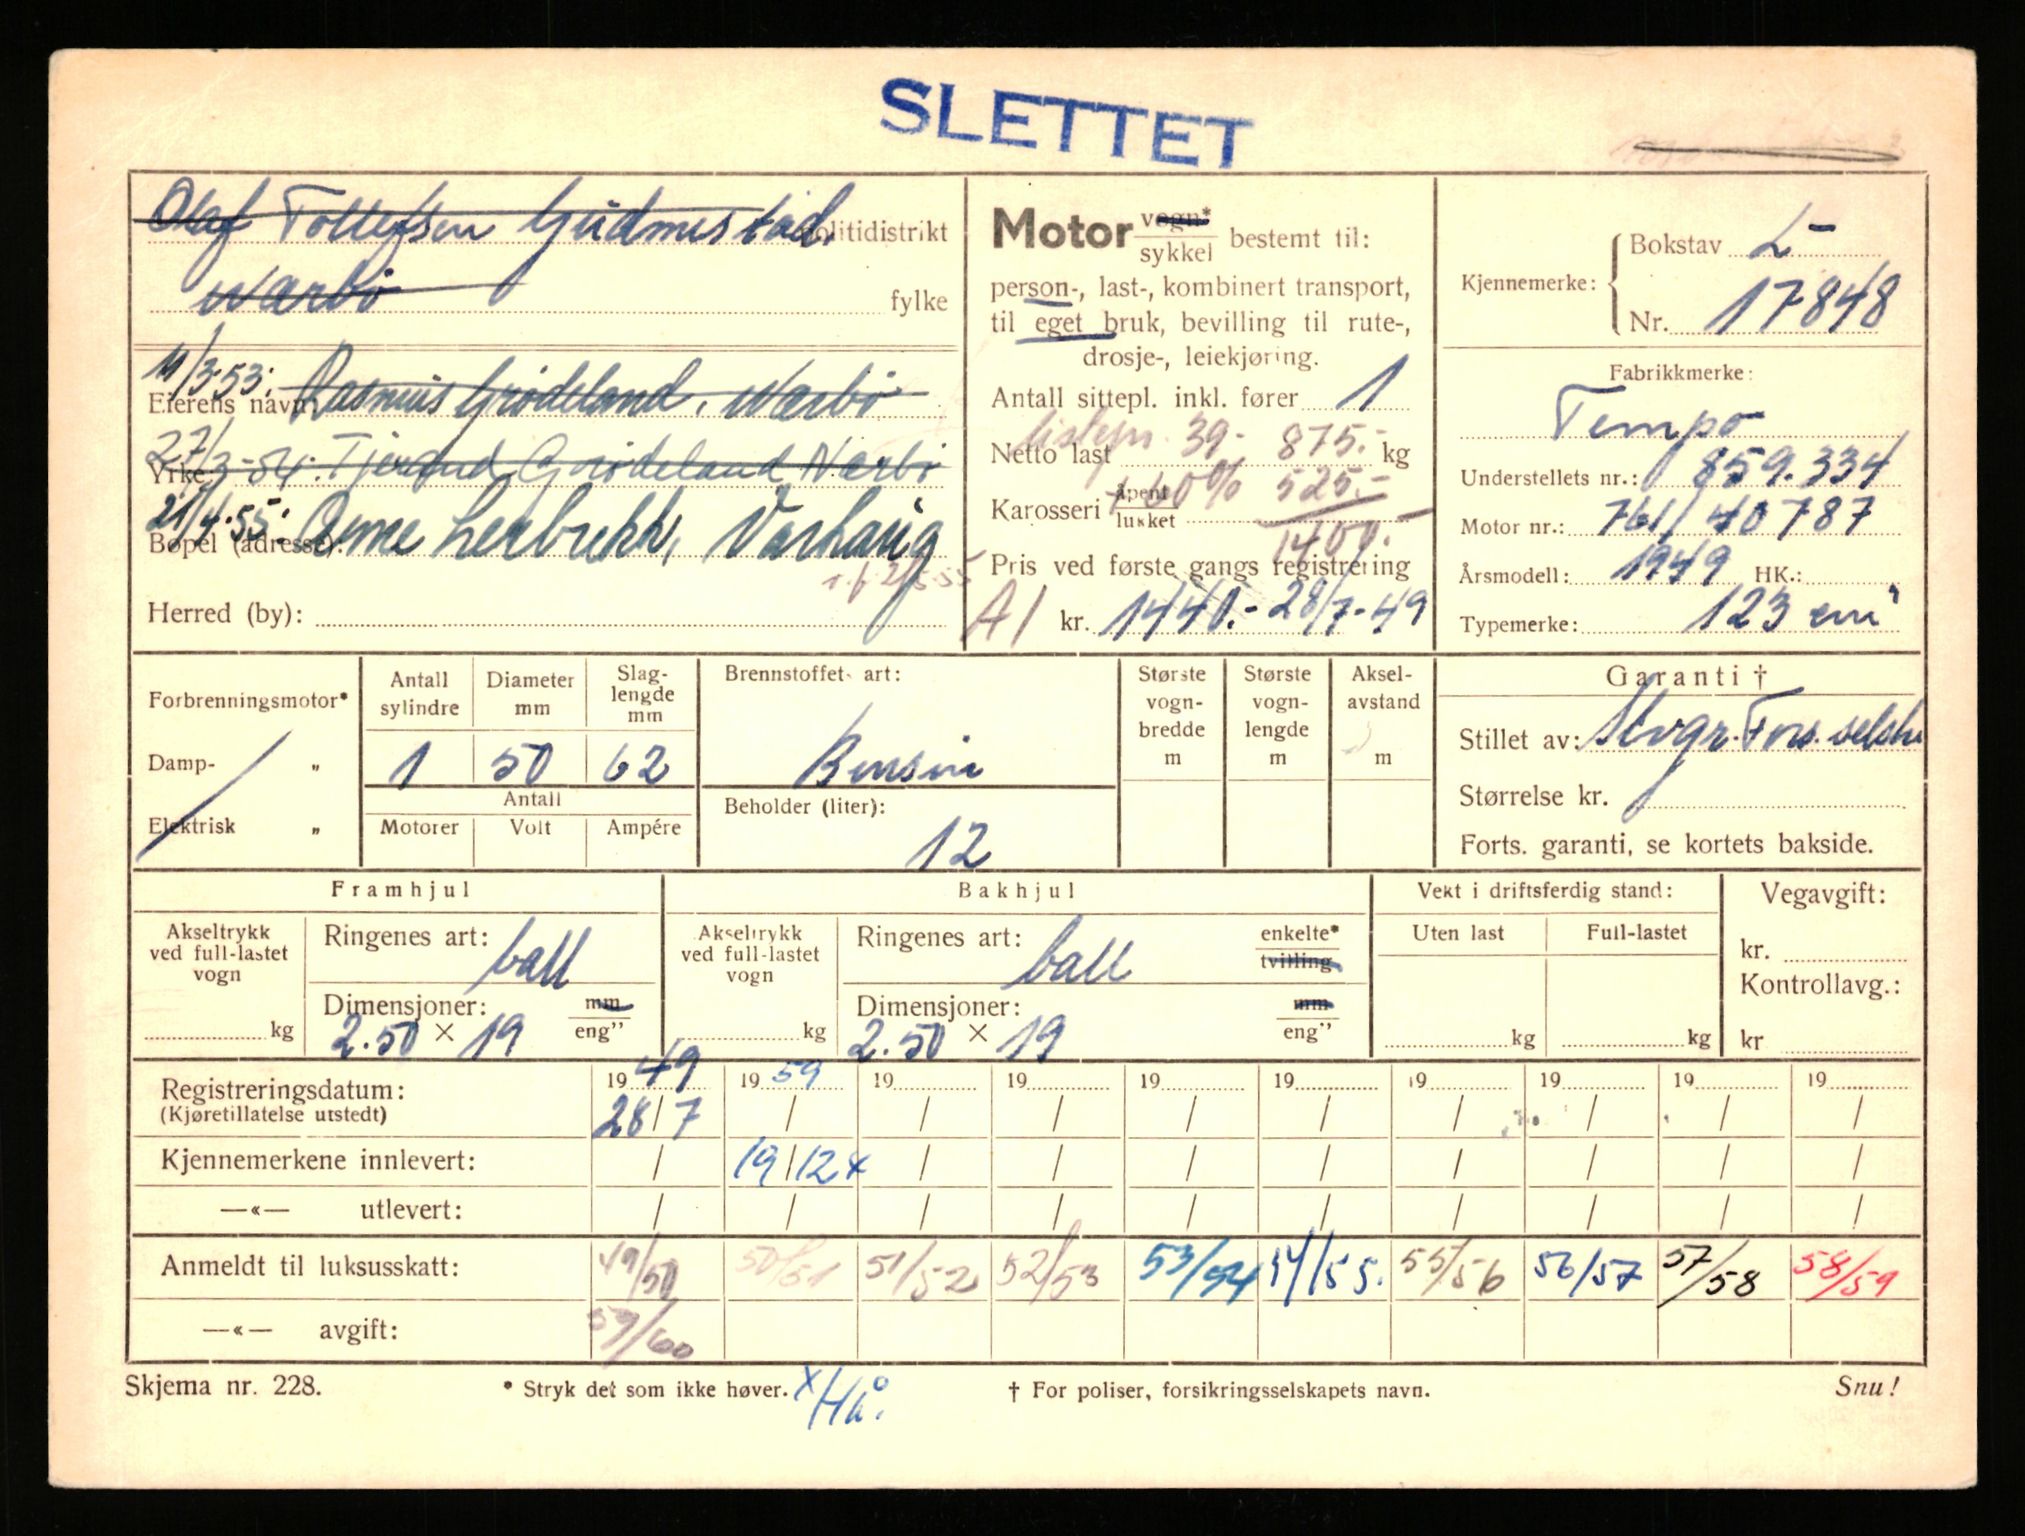 SLETTET
Olaf Tollefsen Gudmestad, politidistrikt
Nærbø fylke
11/3-53: Rasmus Grødeland, Nærbø
Eierens navn:
27/3-54: Tjerand Grødeland Nærbø
Yrke:
21/4-55: Arne Lerbrekk, Varhaug
Bopel (adresse):
Herred (by):
Motor vogn* / sykkel bestemt til:
person-, last-, kombinert transport,
til eget bruk, bevilling til rute-,
drosje-, leiekjøring.
Antall sittepl. inkl. fører 1
Listepr. 39. 875.-
Netto last kg
+ 60% 525.-
Karosseri åpent / lukket
1400.-
Pris ved første gangs registrering
A1 kr. 1440.- 28/7-49
Kjennemerke: Bokstav L-
Nr. 17848
Fabrikkmerke:
Tempo
Understellets nr.: 859.334
Motor nr.: 761/40787
Årsmodell: 1949 HK.:
Typemerke: 123 cm³
Forbrenningsmotor*
Damp- „
Elektrisk „
Antall sylindre Diameter mm Slag-lengde mm
1 50 62
Antall
Motorer Volt Ampére
Brennstoffets art:
Bensin
Beholder (liter):
12
Største vogn-bredde m
Største vogn-lengde m
Aksel-avstand m
Garanti †
Stillet av: Stvgr. Fors.selsk.
Størrelse kr.
Forts. garanti, se kortets bakside.
Framhjul
Akseltrykk ved full-lastet vogn
kg
Ringenes art: ball
Dimensjoner: mm
2.50 × 19 eng”
Bakhjul
Akseltrykk ved full-lastet vogn
kg
Ringenes art: ball enkelte* tvilling
Dimensjoner: mm
2.50 × 19 eng”
Vekt i driftsferdig stand:
Uten last Full-lastet
kg kg
Vegavgift:
kr.
Kontrollavg.:
kr
Registreringsdatum: 1949 1959 19 19 19 19 19 19 19 19
(Kjøretillatelse utstedt) 28/7 / / / / / / / / /
Kjennemerkene innlevert: / 19/12 x / / / / / / / /
—«— utlevert: / / / / / / / / / /
Anmeldt til luksusskatt: 49/50 50/51 51/52 52/53 53/54 54/55. 55/56 56/57 57/58 58/59
—«— avgift: 59/60
Skjema nr. 228. * Stryk det som ikke høver. x/Hå. † For poliser, forsikringsselskapets navn. Snu!